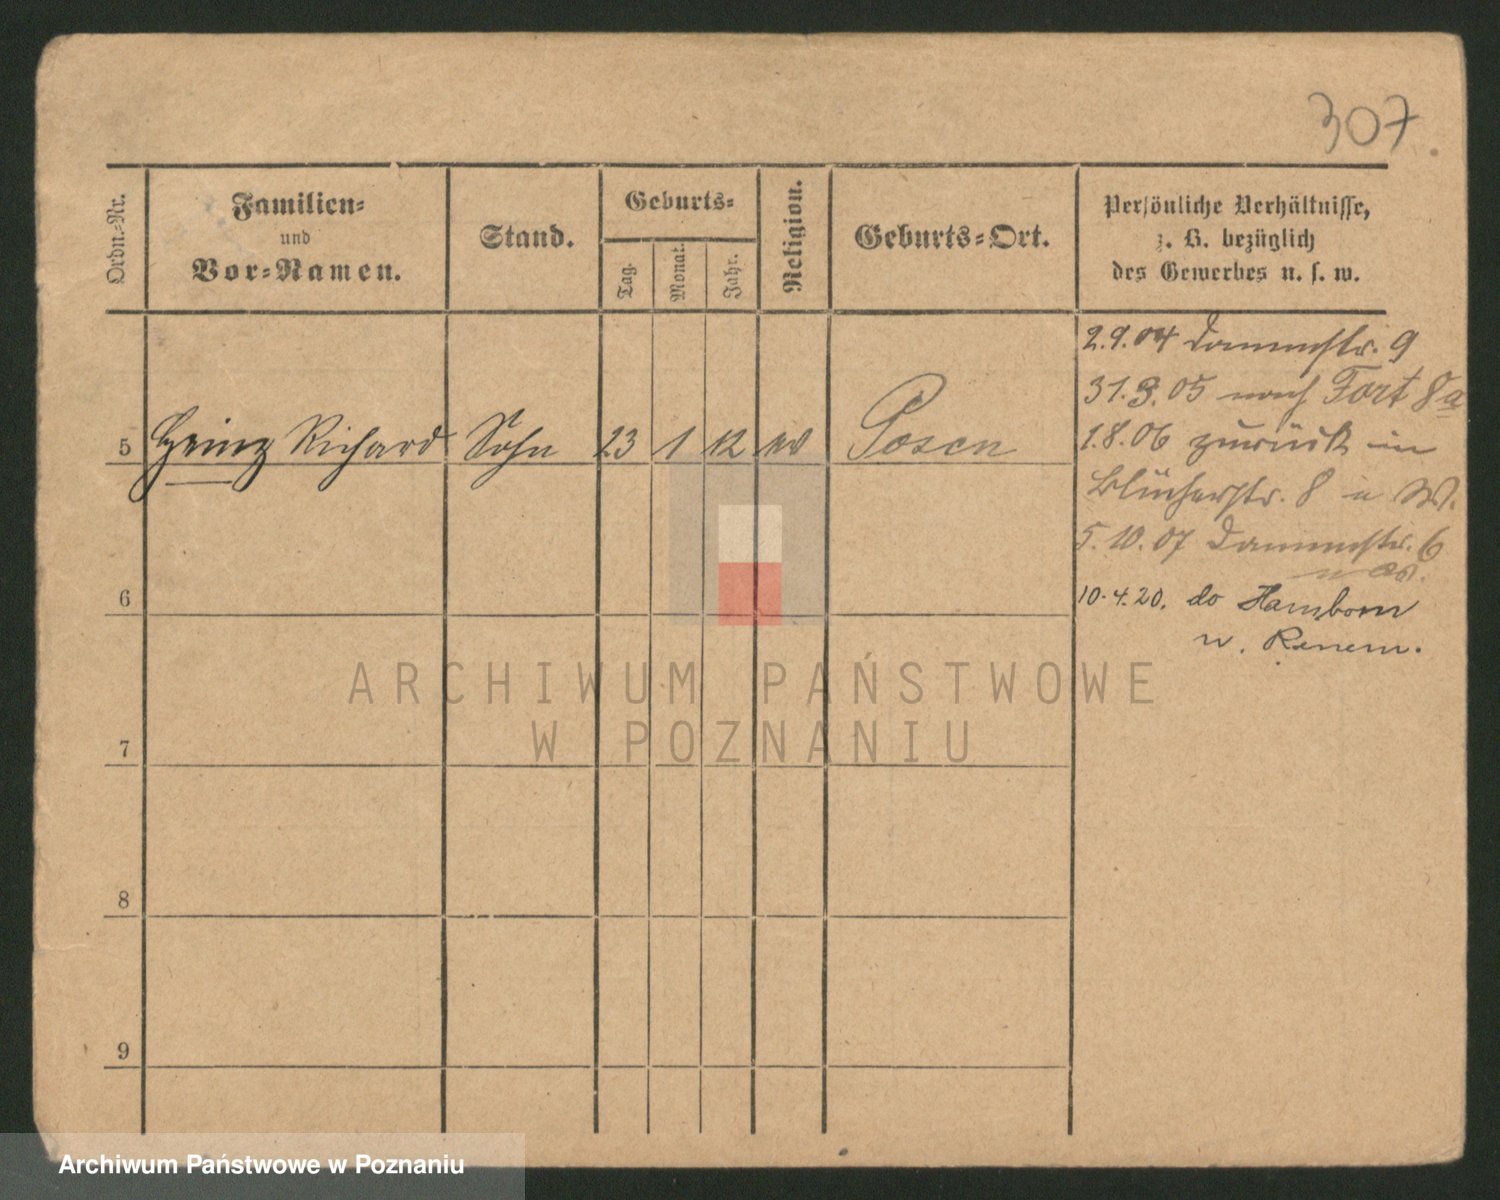 307.
Ordn.-Nr.
Familien-
und
Vor-Namen.
Stand.
Geburts-
Tag.
Monat.
Jahr.
Religion.
Geburts-Ort.
Persönliche Verhältnisse,
z. B. bezüglich
des Gewerbes u. s. w.
2.9.04 Dammstr. 9
31.3.05 nach Fort 8a
5 Heinz Richard Sohn 23 1 12 ev Posen
1.8.06 zurück in
Blücherstr. 8 u W.
5.10.07 Dammstr. 6
6
10.4.20. do Hamborn
w. Renem.
7
8
9
ARCHIWUM PAŃSTWOWE
W POZNANIU
Archiwum Państwowe w Poznaniu